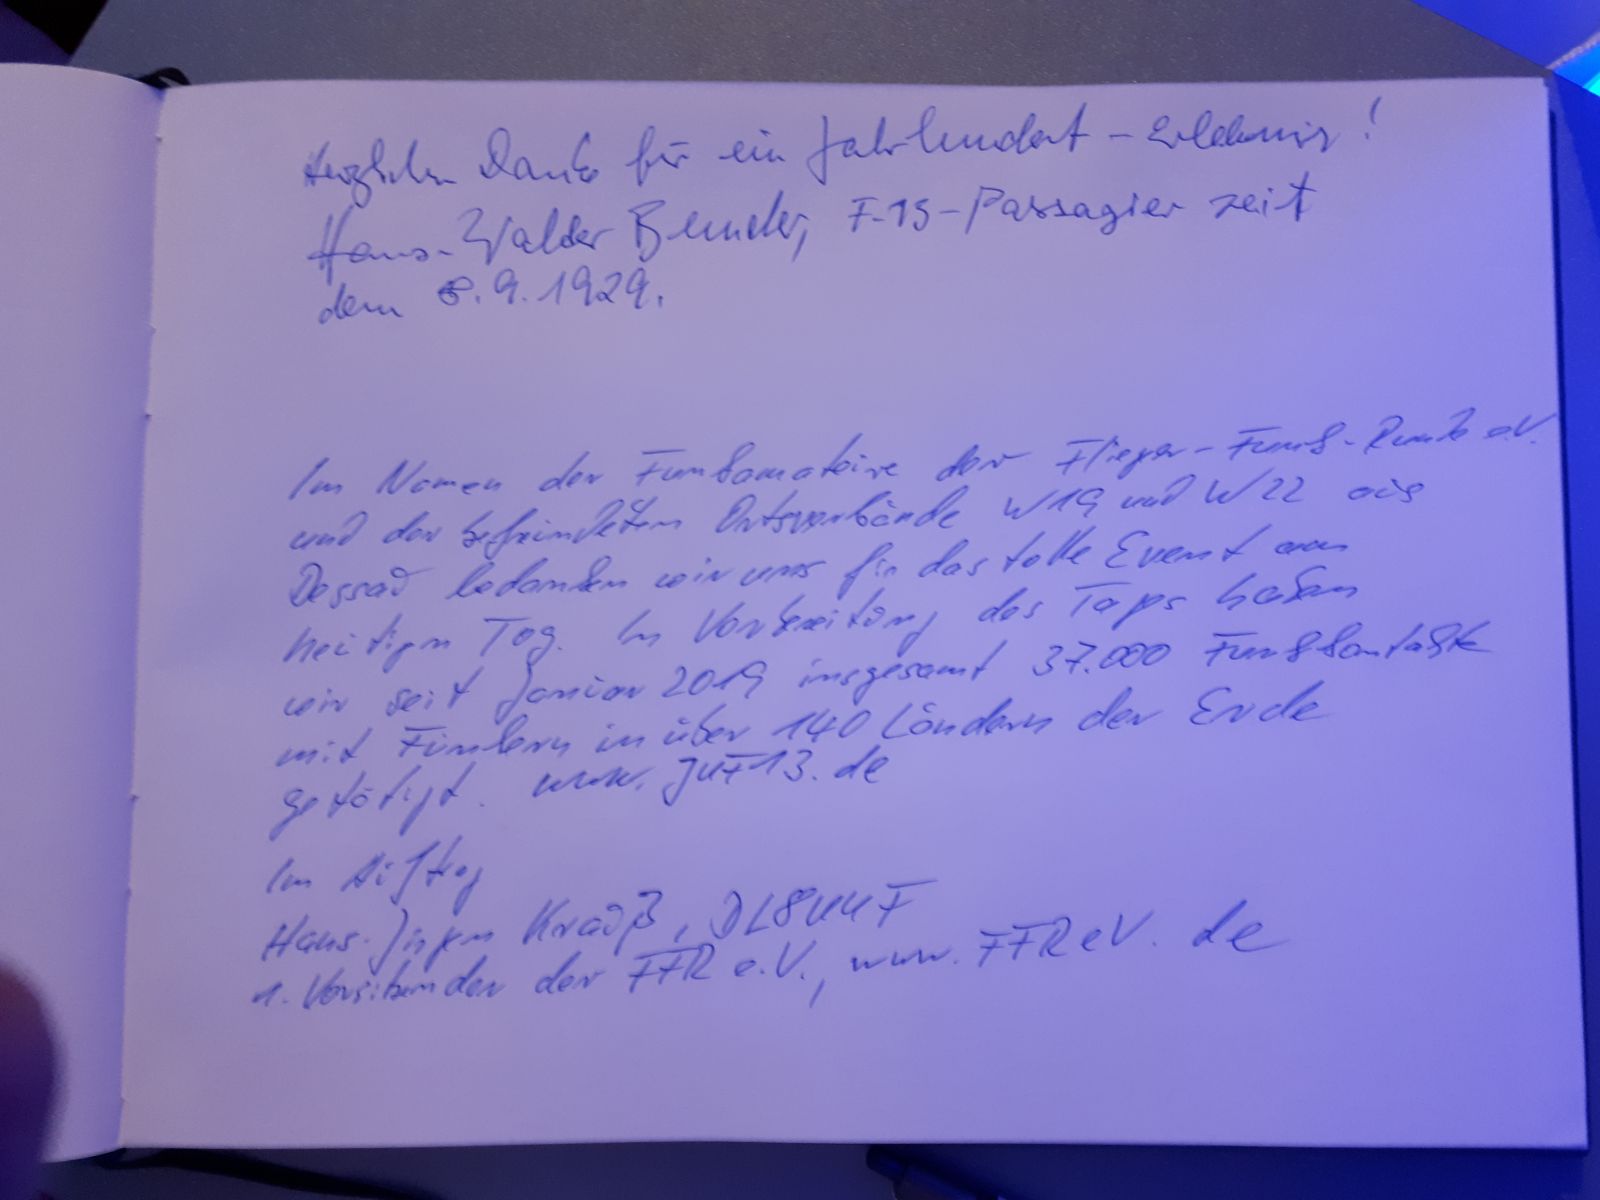 Herzlichen Dank für ein Jahrhundert-Erlebnis!
Hans-Walder Bender, F-13-Passagier zeit
dem 8.9.1929.
Im Namen der Funkamateure der Flieger-Funk-Runde e.V.
und der befreundeten Ortsverbände W19 und W22 aus
Dessau bedanken wir uns für das tolle Event am
heutigen Tag. In Vorbereitung des Tages haben
wir seit Januar 2019 insgesamt 37.000 Funkkontakte
mit Funkern in über 140 Ländern der Erde
getätigt. www.JUF13.de
Im Auftrag
Hans-Jürgen Krauß, DL8UUF
1. Vorsitzender der FFR e.V., www.FFReV.de